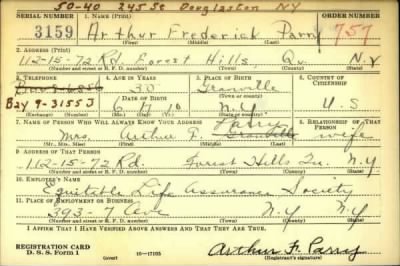 50-40 245 St Douglaston NY
SERIAL NUMBER 1. NAME (Print) ORDER NUMBER
3159 Arthur Frederick Parry 757
(First) (Middle) (Last)
2. ADDRESS (Print)
112-15-72 Rd. Forest Hills, Qu. N.Y
(Number and street or R. F. D. number) (Town) (County) (State)
3. TELEPHONE 4. AGE IN YEARS 5. PLACE OF BIRTH 6. COUNTRY OF CITIZENSHIP
30 Granville
Bay 9-3155J DATE OF BIRTH (Town or county)
6 17 10 N.Y U.S
(Exchange) (Number) (Mo.) (Day) (Yr.) (State or country)
7. NAME OF PERSON WHO WILL ALWAYS KNOW YOUR ADDRESS 8. RELATIONSHIP OF THAT PERSON
Parry
Mrs. Arthur F. Granville wife
(Mr., Mrs., Miss) (First) (Middle) (Last)
9. ADDRESS OF THAT PERSON
112-15-72 Rd. Forest Hills Qu. N.Y
(Number and street or R. F. D. number) (Town) (County) (State)
10. EMPLOYER'S NAME
Equitable Life Assurance Society
11. PLACE OF EMPLOYMENT OR BUSINESS
393-7 Ave N.Y N.Y
(Number and street or R. F. D. number) (Town) (County) (State)
I AFFIRM THAT I HAVE VERIFIED ABOVE ANSWERS AND THAT THEY ARE TRUE.
REGISTRATION CARD
D. S. S. Form 1 (over) 16—17105 Arthur F. Parry
(Registrant's signature)